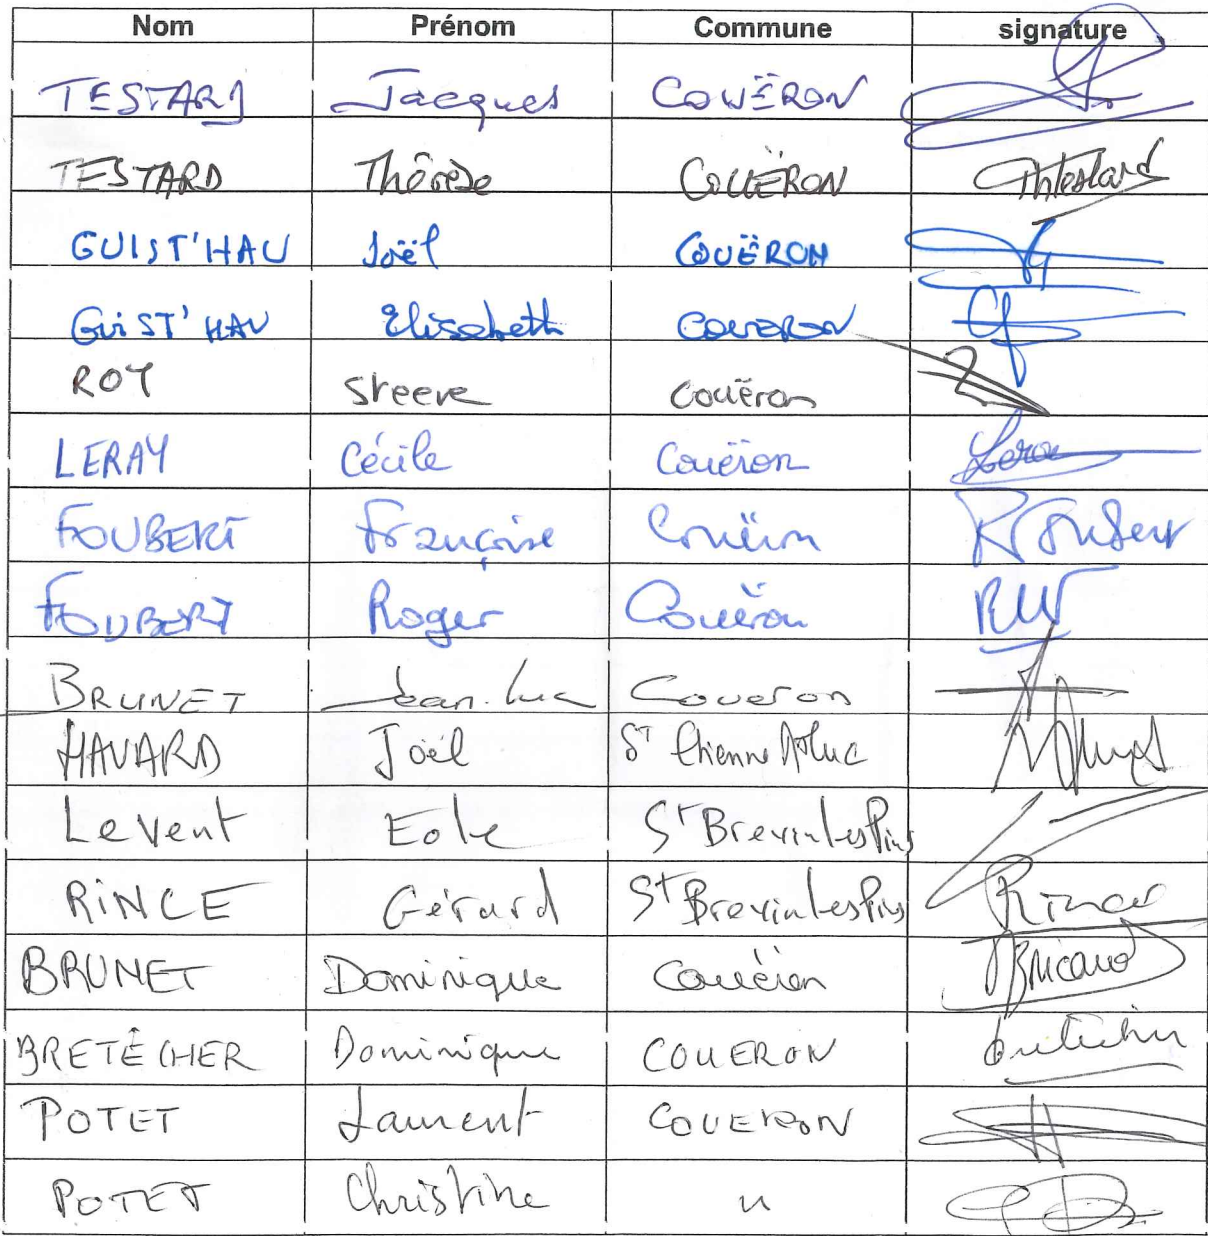 Nom Prénom Commune signature
TESTARD Jacques COUËRON
TESTARD Thérèse COUËRON Thtestard
GUIST'HAU Joël COUËRON
GUIST'HAU Elisabeth COUERON
ROY Steeve Couëron
LERAY Cécile Couëron Leray
FOUBERT Françoise Couëron Foubert
FOUBERT Roger Couëron
BRUNET Jean-Luc Coueron
HAVARD Joël St Etienne
Levent Eole St Brevin les Pins
RINCE Gérard St Brevin les Pins Rince
BRUNET Dominique Couëron
BRETÊCHER Dominique COUERON
POTET Laurent COUERON
POTET Christine "